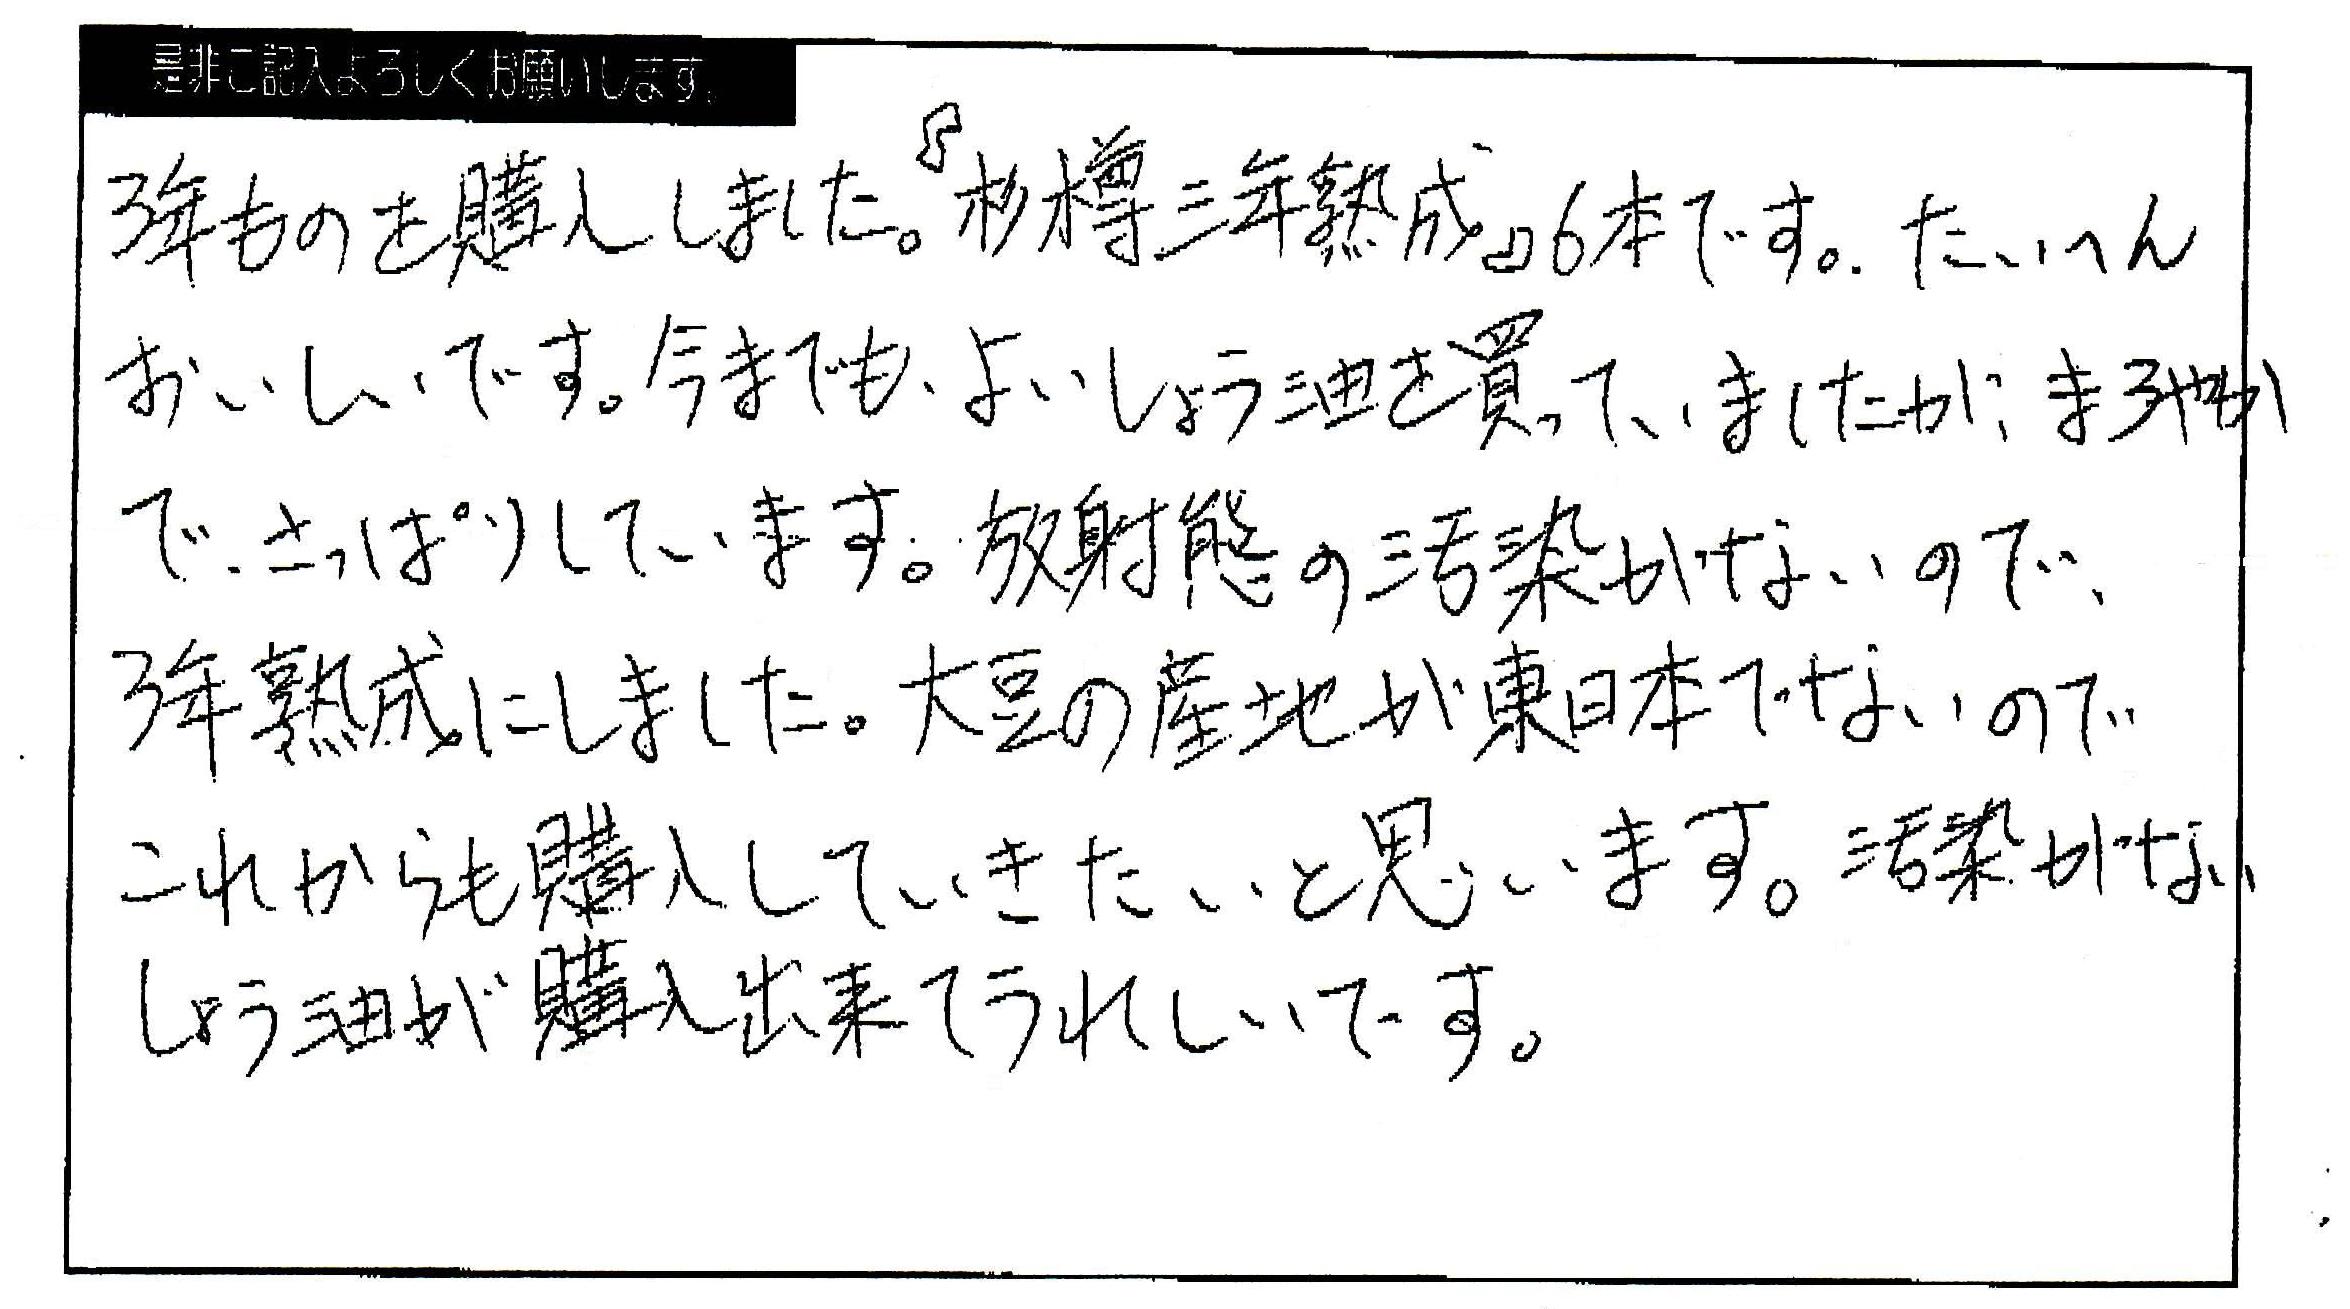 是非ご記入よろしくお願いします。
3年ものを購入しました。『杉樽三年熟成』6本です。たいへん
おいしいです。今までも、よいしょう油を買っていましたが、まろやか
で、さっぱりしています。放射態の汚染がないので、
3年熟成にしました。大豆の産地が東日本でないので
これからも購入していきたいと思います。汚染がない
しょう油が購入出来てうれしいです。